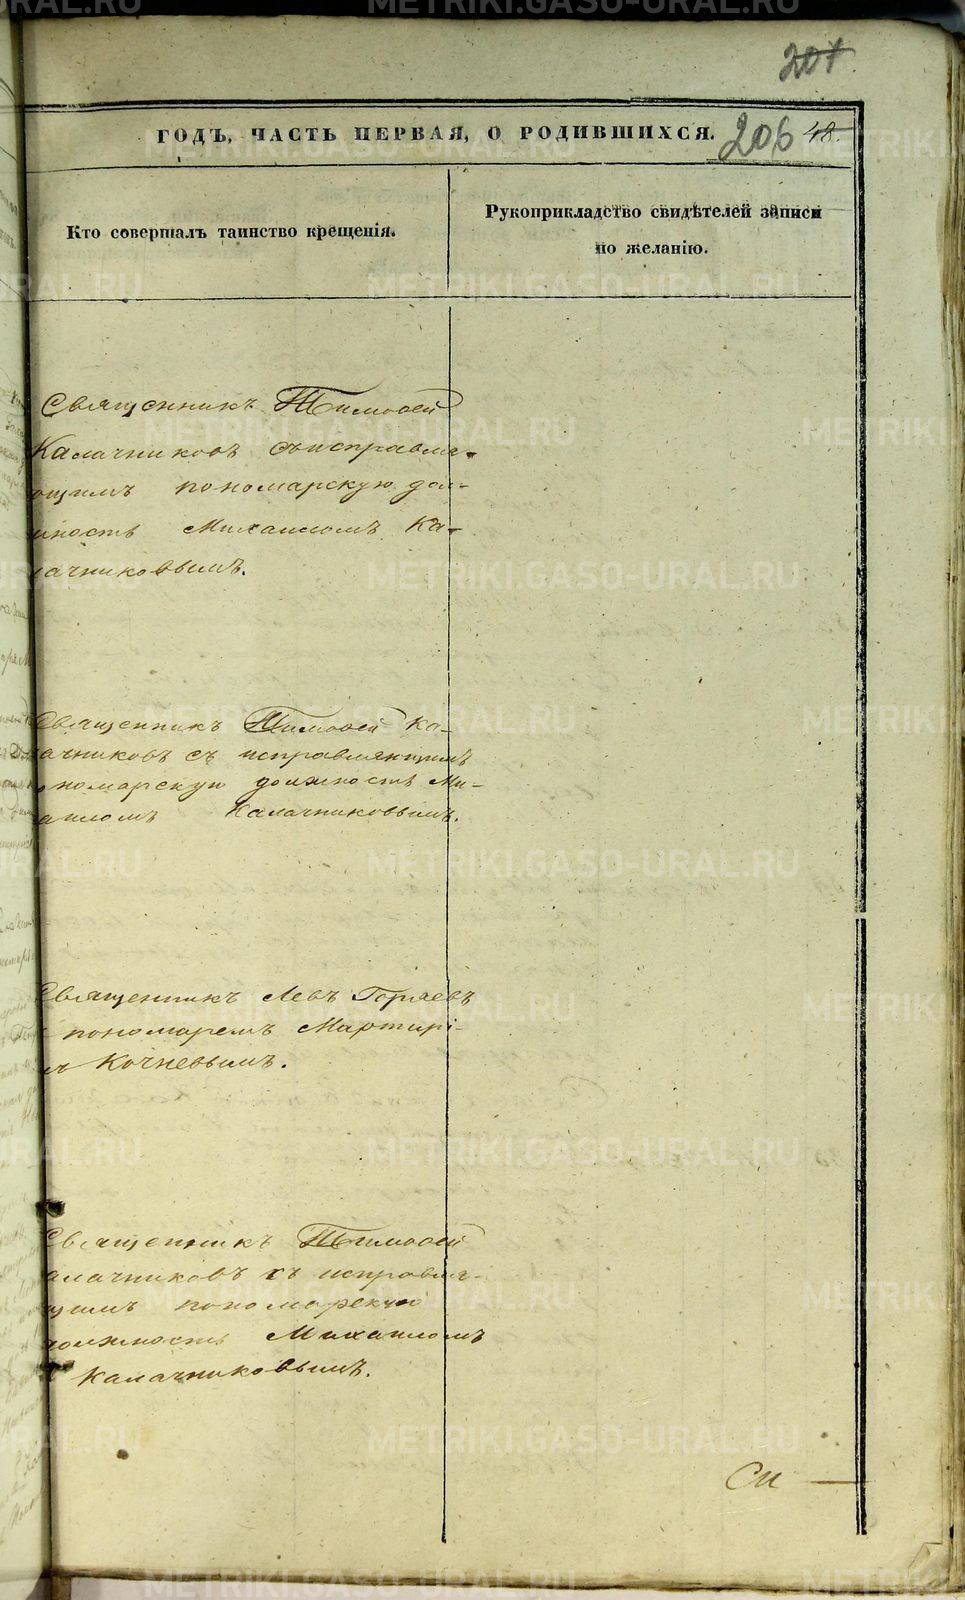 201
ГОДЪ, ЧАСТЬ ПЕРВАЯ, О РОДИВШИХСЯ.
206 48.
Кто совершалъ таинство крещенія.
Рукоприкладство свидѣтелей записи
по желанію.
Священникъ Тимофей
Калачниковъ съ исправля-
ющимъ пономарскую дол-
жность Михаиломъ Ка-
лачниковымъ.
Священникъ Тимофей Ка-
лачниковъ съ исправляющимъ
пономарскую должность Ми-
хаиломъ Калачниковымъ.
Священникъ Левъ Горяевъ
съ пономаремъ Мартирі-
емъ Кочневымъ.
Священникъ Тимофей
Калачниковъ съ исправля-
ющимъ пономарскую
должность Михаиломъ
Калачниковымъ.
Си
METRIKI.GASO-URAL.RU